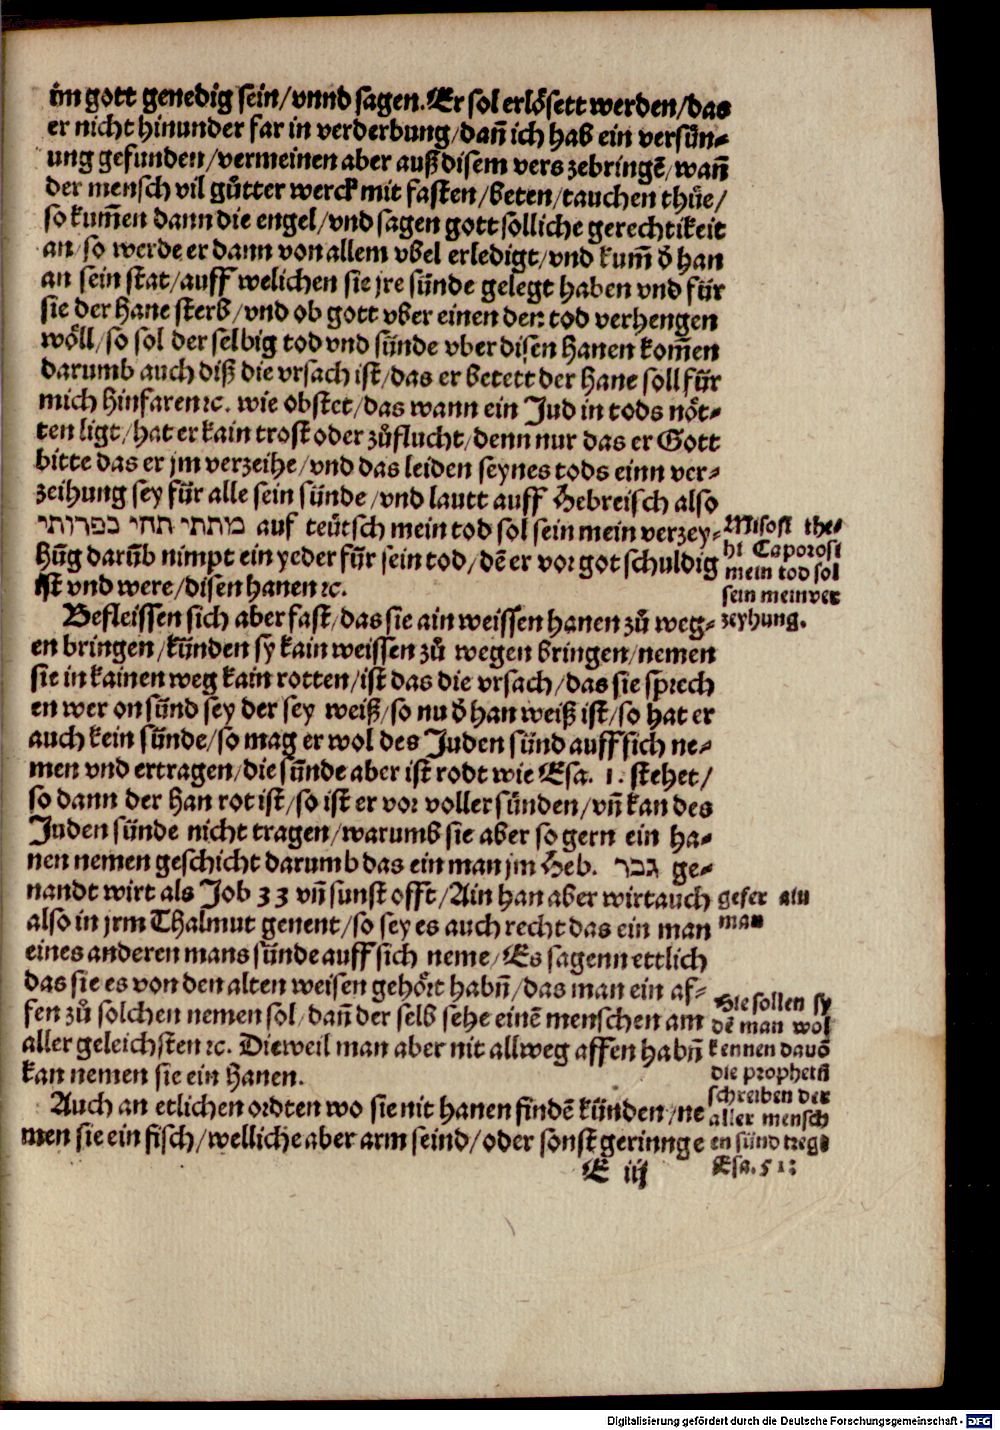 im gott genedig sein/vnnd sagen. Er sol erlösett werden/das
er nicht hinunder far in verderbung/dañ ich hab ein versün-
ung gefunden/vermeinen aber auß disem vers zebringẽ/wañ
der mensch vil gůtter werck mit fasten/beten/tauchen thüe/
so kum̃en dann die engel/vnd sagen gott solliche gerechtikeit
an/so werde er dann von allem vbel erledigt/vnd kum̃ ð han
an sein stat/auff welichen sie jre sünde gelegt haben vnd für
sie der Hane sterb/vnd ob gott vber einen den tod verhengen
wöll/so sol der selbig tod vnd sünde vber disen Hanen kom̃en
darumb auch diß die vrsach ist/das er betett der Hane soll für
mich Hinfaren ꝛc. wie obstet/das wann ein Jud in tods nöt-
ten ligt/hat er kain trost oder zůflucht/denn nur das er Gott
bitte das er jm verzeihe/vnd das leiden seynes tods einn ver-
zeihung sey für alle sein sünde/vnd lautt auff Hebreisch also
מתתי תחי כפרותי auf teütsch mein tod sol sein mein verzey-
hũg darũb nimpt ein yeder für sein tod/dẽ er vor got schuldig
ist vnd were/disen hanen ꝛc.
Befleissen sich aber fast/das sie ain weissen hanen zů weg-
en bringen/künden sy kain weissen zů wegen bringen/nemen
sie in kainen weg kain rotten/ist das die vrsach/das sie sprech
en wer on sünd sey der sey weiß/so nu ð han weiß ist/so hat er
auch kein sünde/so mag er wol des Juden sünd auff sich ne-
men vnd ertragen/die sünde aber ist rodt wie Esa. 1. stehet/
so dann der Han rot ist/so ist er vor voller sünden/vñ kan des
Juden sünde nicht tragen/warumb sie aber so gern ein ha-
nen nemen geschicht darumb das ein man jm Heb. גבר ge-
nandt wirt als Job 33 vñ sunst offt/Ain han aber wirt auch
also in jrm Thalmut genent/so sey es auch recht das ein man
eines anderen mans sünde auff sich neme/Es sagenn ettlich
das sie es von den alten weisen gehört habñ/das man ein af-
fen zů solchen nemen sol/dañ der selb sehe einẽ menschen am
aller geleichsten ꝛc. Dieweil man aber nit allweg affen habñ
kan nemen sie ein Hanen.
Auch an etlichen ordten wo sie nit hanen findẽ künden/ne
men sie ein fisch/welliche aber arm seind/oder sonst gerinnge
E iij
Misost the-
hi Caporosi
mein tod sol
sein mein ver
zeyhung.
gefer ain
man
Hie sollen sy
dẽ man wol
kennen dauõ
die prophetñ
schreiben der
aller mensch
en sünd treg-
Esa. 51:
Digitalisierung gefördert durch die Deutsche Forschungsgemeinschaft - DFG